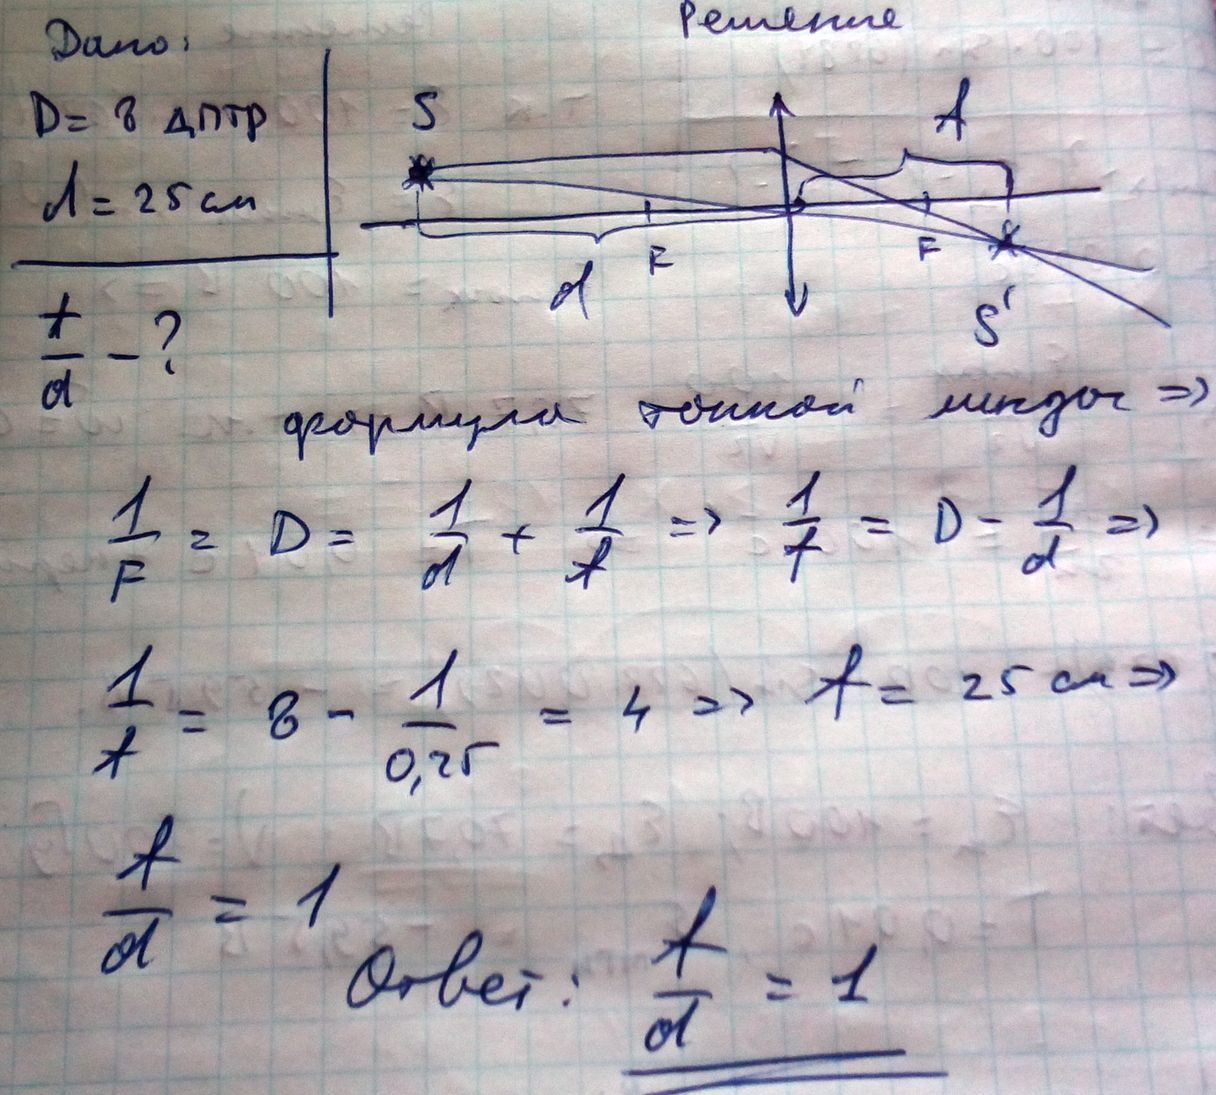 Дано:
Решение
D = 8 дптр
d = 25 см
f/d - ?
S
f
F
F
d
S'
формула тонкой линзы =>
1/F = D = 1/d + 1/f => 1/f = D - 1/d =>
1/f = 8 - 1/0,25 = 4 => f = 25 см =>
f/d = 1
Ответ: f/d = 1